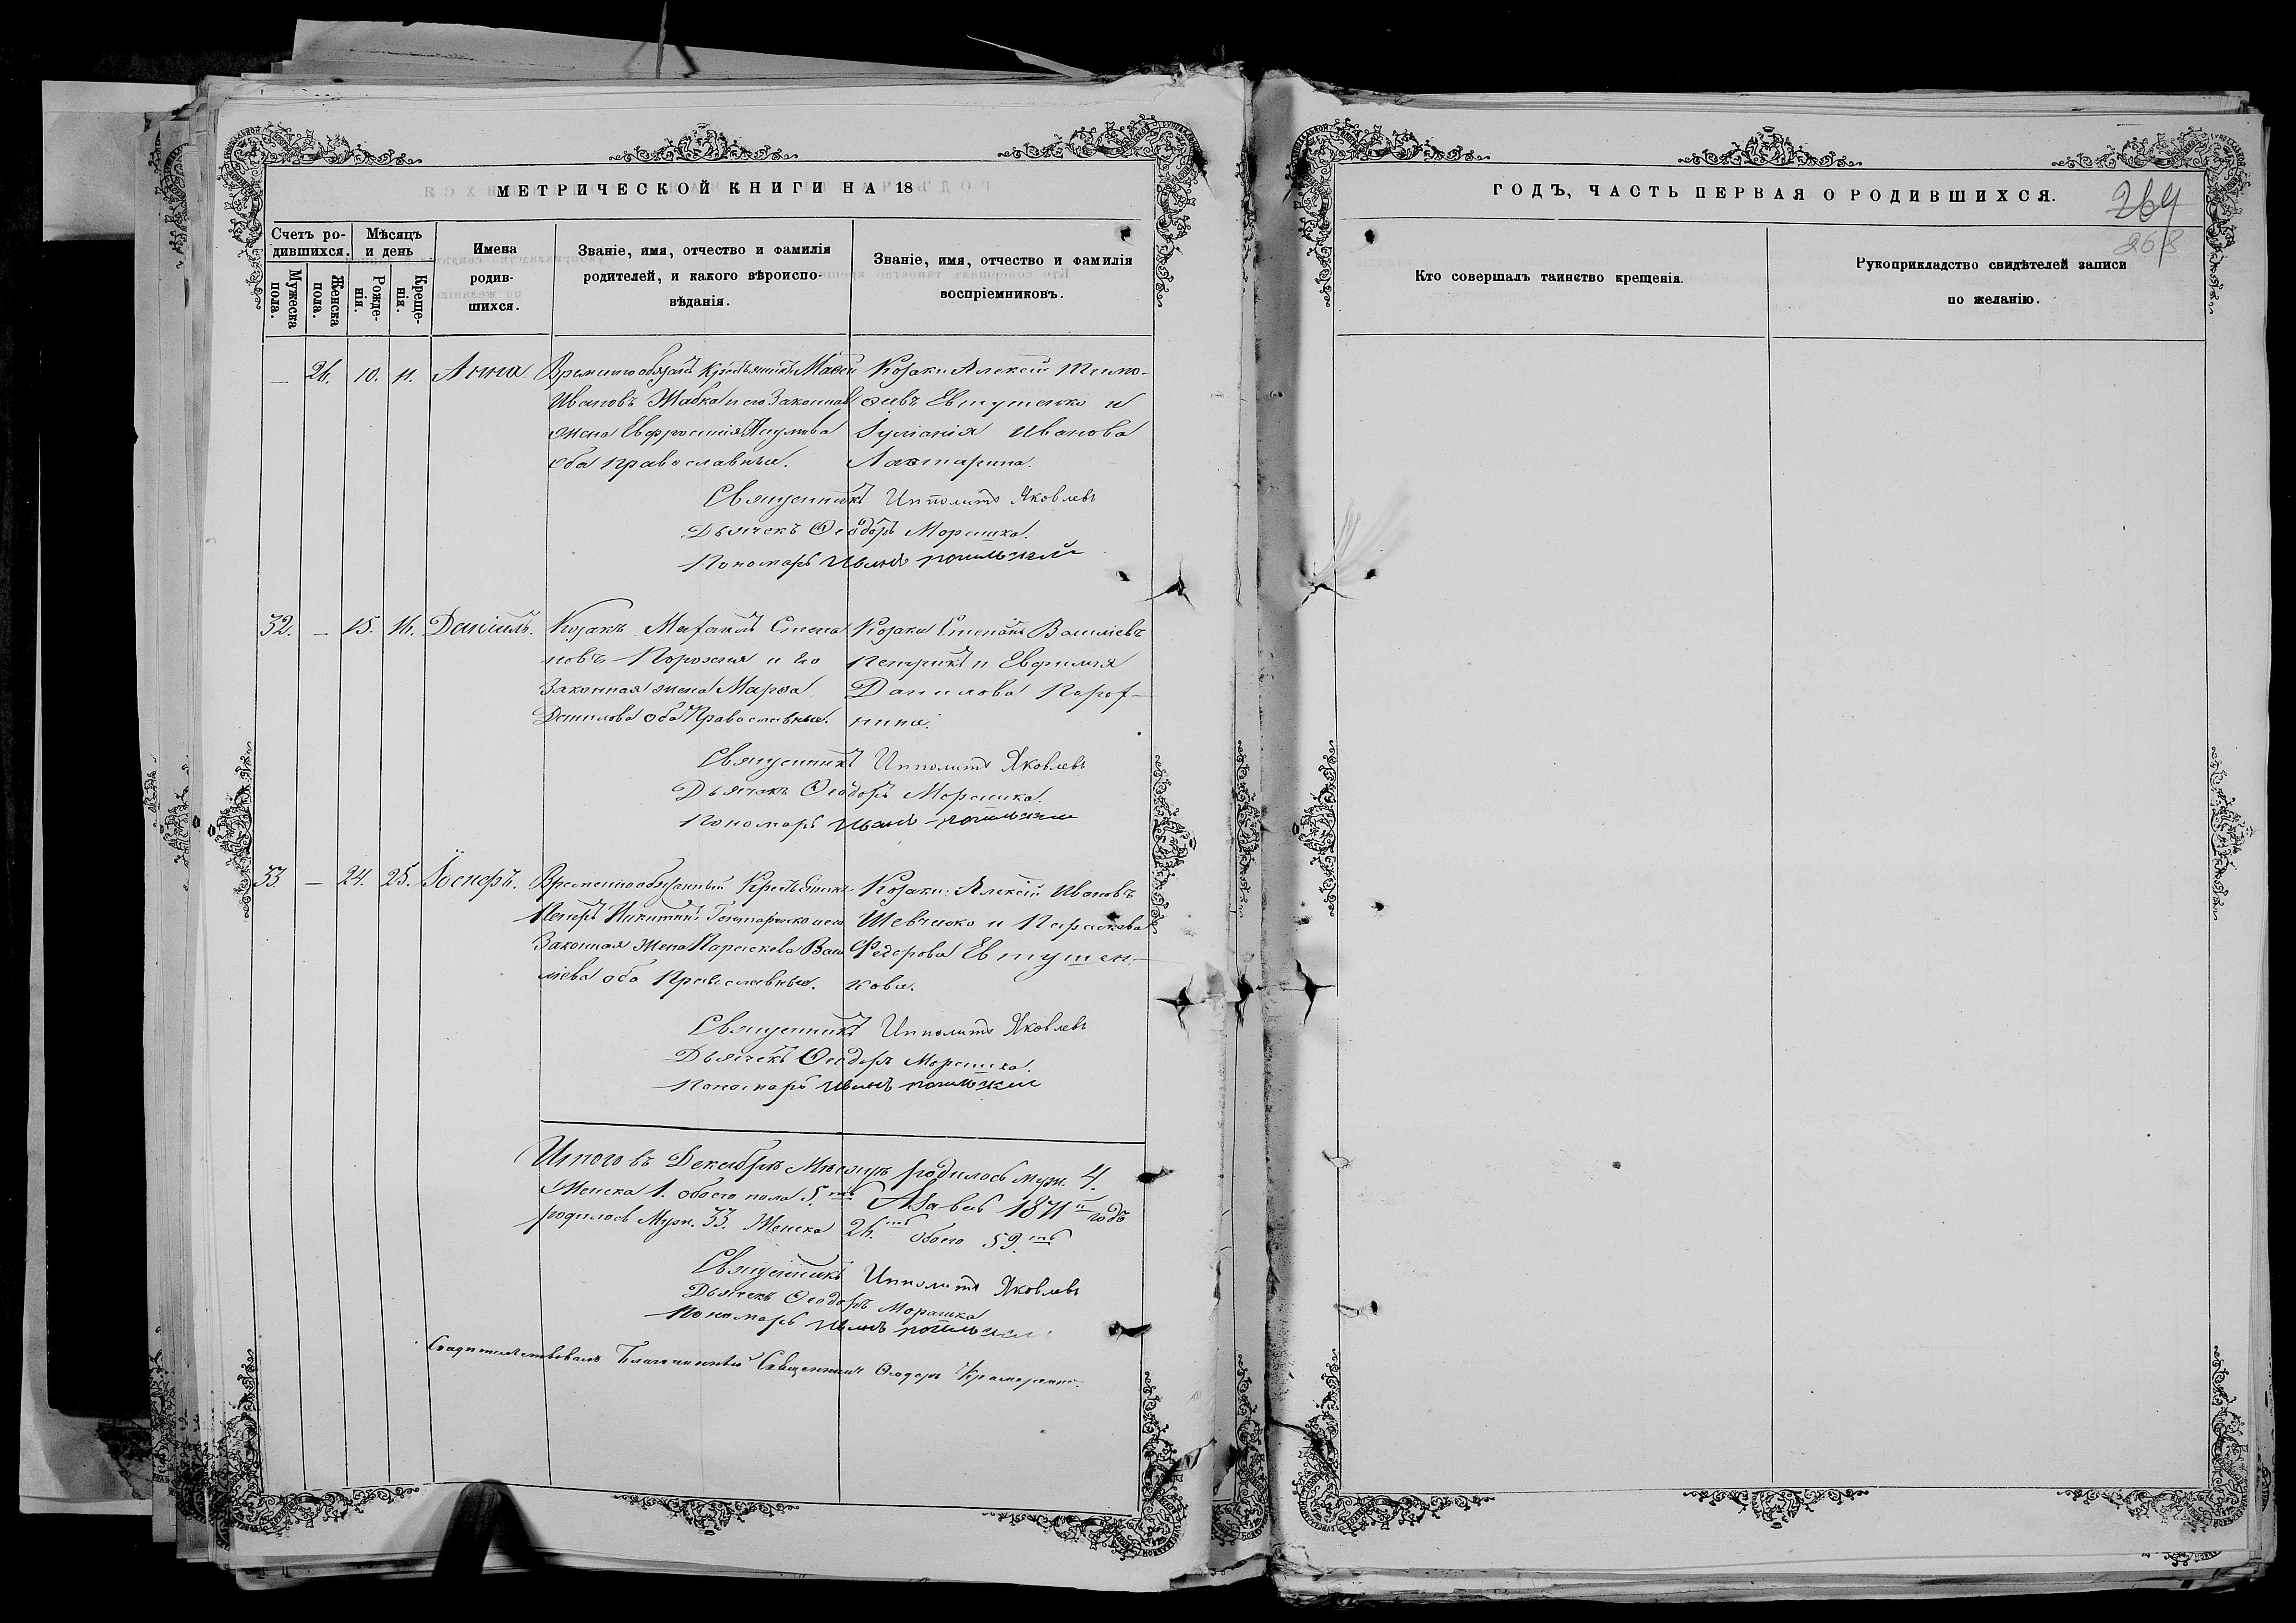 МЕТРИЧЕСКОЙ КНИГИ НА 18
Счетъ ро-
дившихся.
Мѣсяцъ
и день
Мужеска
пола.
Женска
пола.
Рожде-
нія.
Креще-
нія.
Имена
родив-
шихся.
Званіе, имя, отчество и фамилія
родителей, и какого вѣроиспо-
вѣданія.
Званіе, имя, отчество и фамилія
воспріемниковъ.
— 26. 10. 11. Анна.
Временнообязан. крестьянинъ
Ивановъ Жабка и его законная
жена Евфросинія Наумова
оба православные.
Козаки Алексѣй Тимо-
ѳеевъ Евтушенко и
Іуліанія Иванова
Лахтарина.
Священникъ Ипполитъ Яковлевъ
Дьячекъ Ѳеодоръ Морашка.
Пономарь Иванъ
32. — 15. 16. Даніилъ.
Козакъ Михаилъ Степа
новъ Порохня и его
законная жена Марѳа
Данилова оба Православные.
Козаки Степанъ Василіевъ
Петрикъ и Евфимія
Данилова Порох-
нина.
Священникъ Ипполитъ Яковлевъ
Дьячекъ Ѳеодоръ Морашка.
Пономарь Иванъ
33. — 24. 25.
Временнообязанный Крестьянинъ
Петръ Никитинъ Гонтаренко и его
Законная Жена Параскева Васи
ліева оба Православные.
Козаки: Алексѣй Ивановъ
Шевченко и Параскева
Федорова Евтушен-
кова.
Священникъ Ипполитъ Яковлевъ
Дьячекъ Ѳеодоръ Морашка.
Пономарь Иванъ
Итого въ Декабрѣ Мѣсяцѣ родилось муж. 4.
Женска 1. обоего пола 5.ть А за весь 1871й годъ
родилось Муж. 33. Женска 26.ть обоего 59.ть
Священникъ Ипполитъ Яковлевъ
Дьячекъ Ѳеодоръ Морашка
Пономарь Иванъ
Свидѣтельствовалъ Благочинный Священникъ Ѳеодоръ
ГОДЪ, ЧАСТЬ ПЕРВАЯ О РОДИВШИХСЯ.
264
268
Кто совершалъ таинство крещенія.
Рукоприкладство свидѣтелей записи
по желанію.